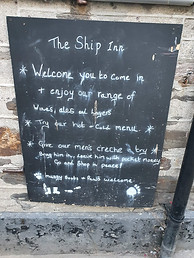 The Ship Inn
* Welcome you to come in
+ enjoy our range of
Wines, ales and lagers
* Try our hot + cold menu *
* Give our men's creche a try
Bring him in, leave him with pocket money
Go and Shop in peace!
* Muddy Boots + Paws welcome